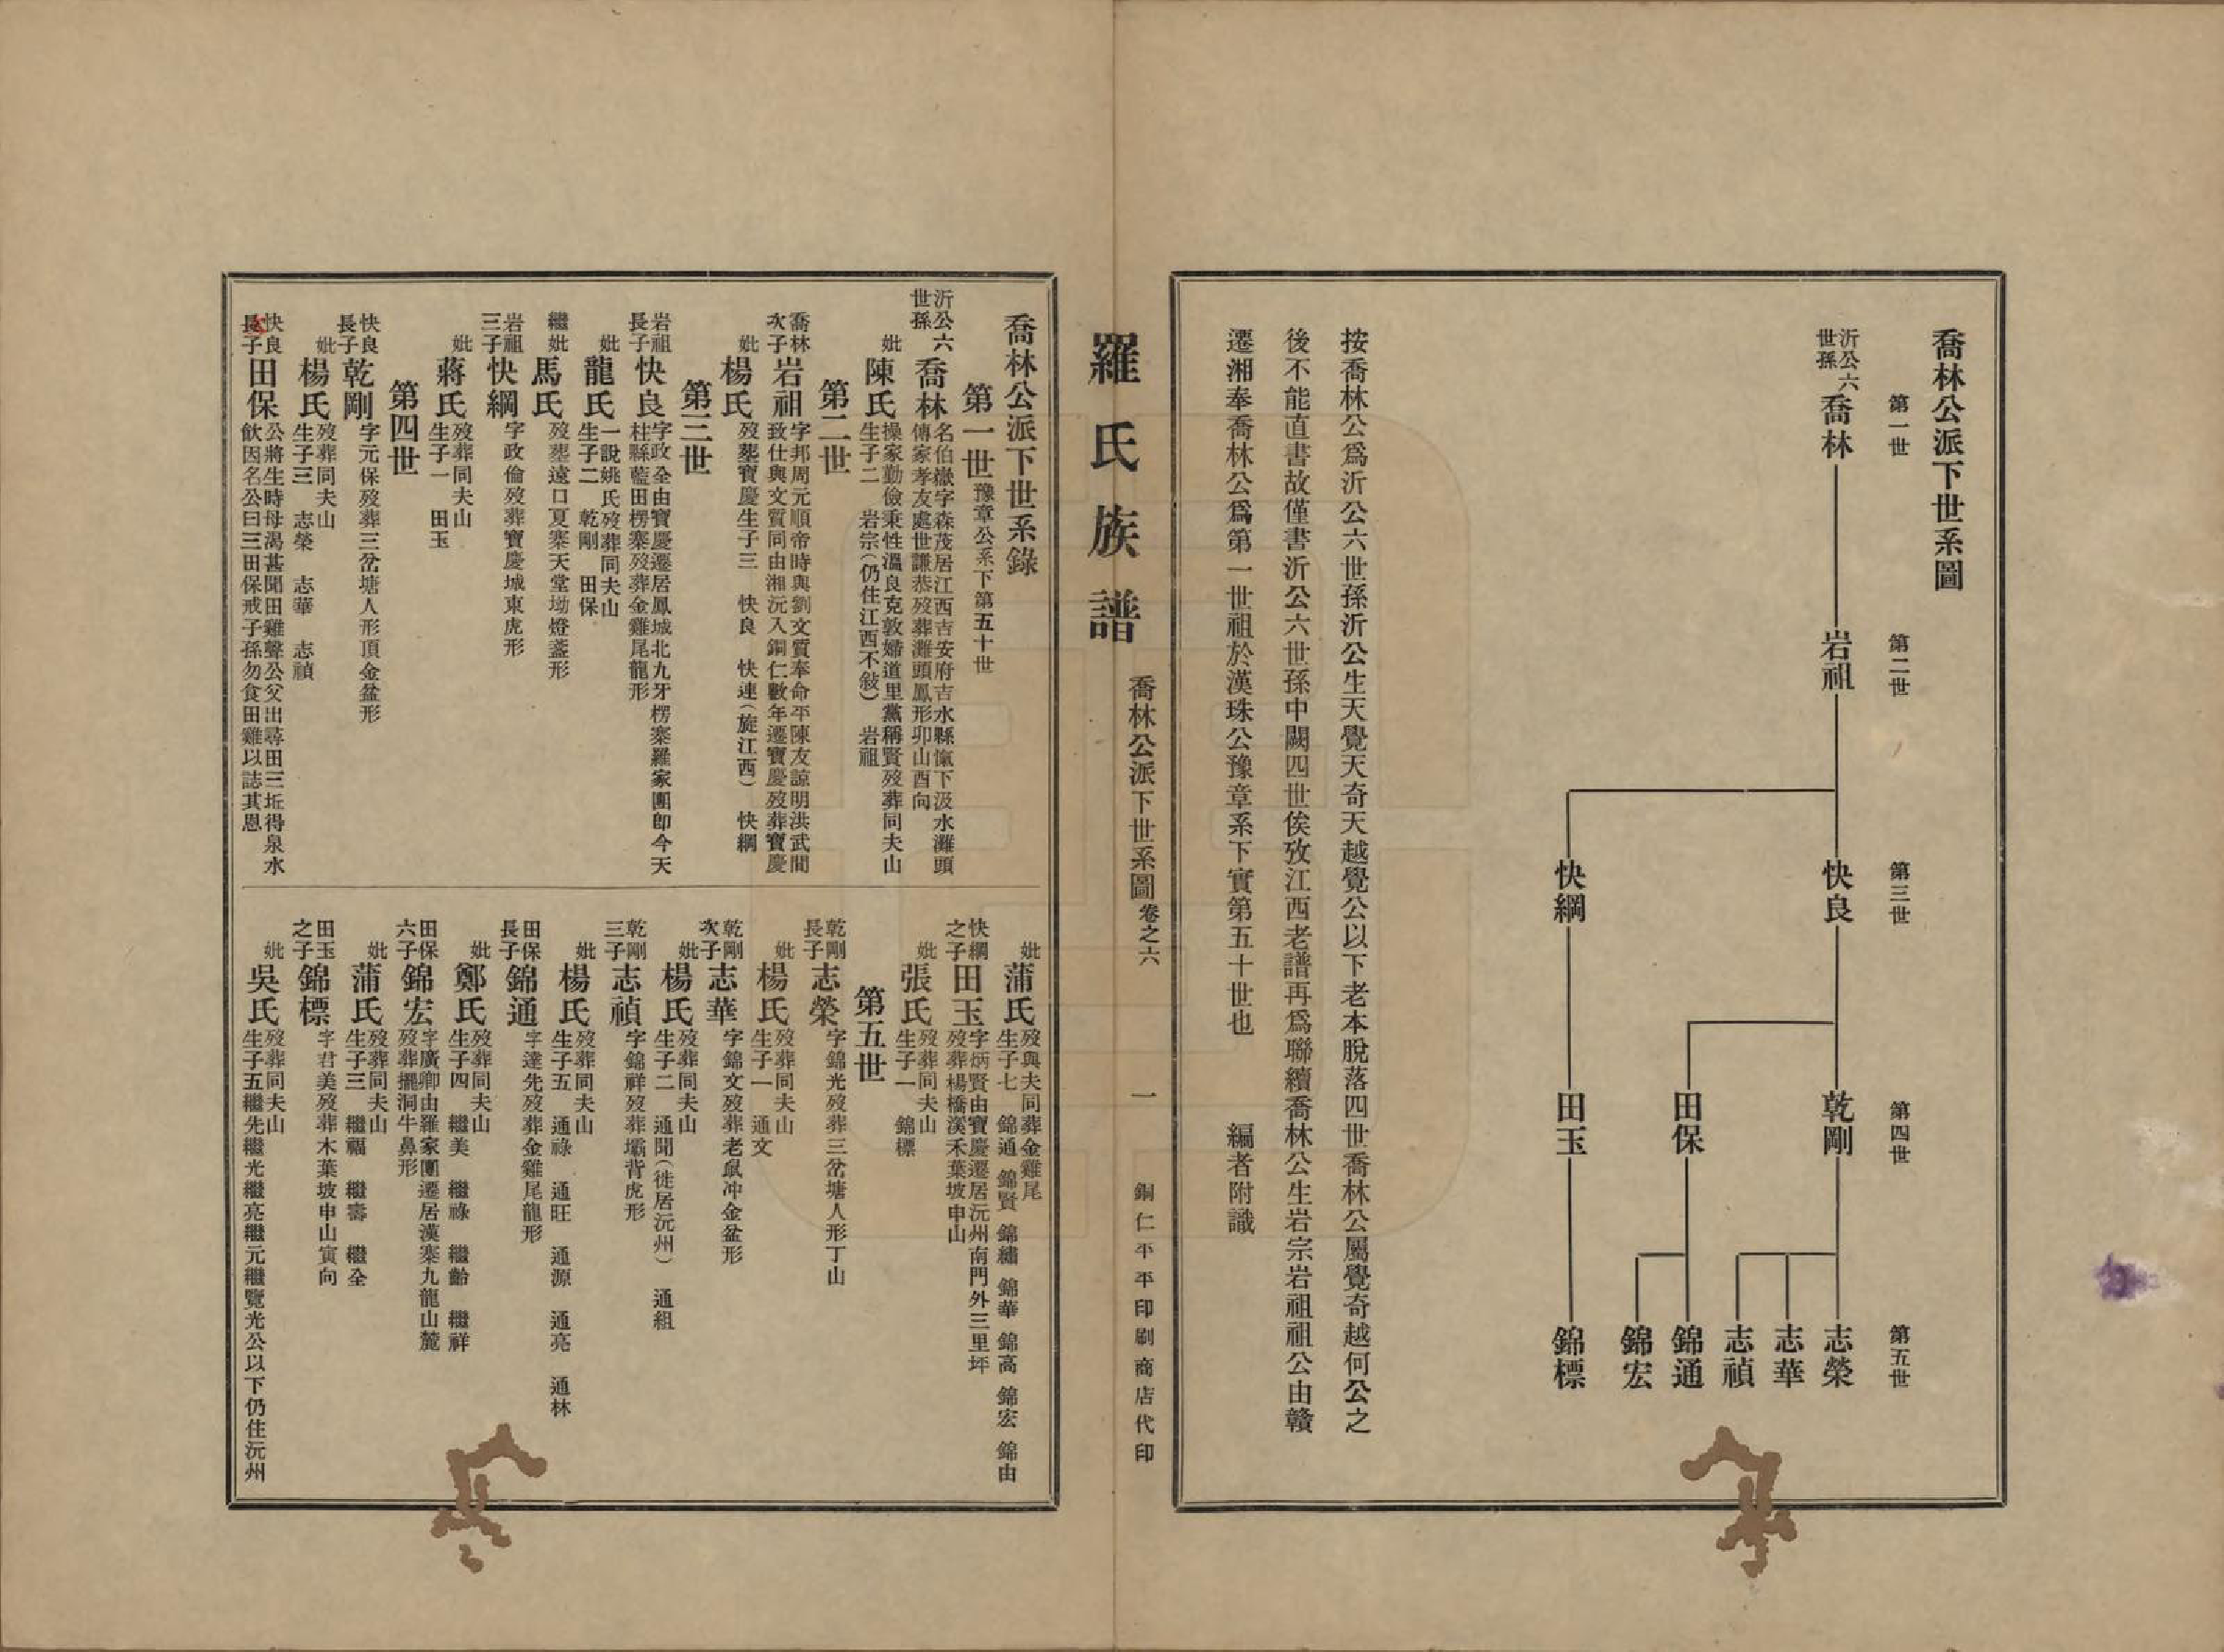 喬林公派下世系圖
第一世
第二世
第三世
第四世
第五世
沂公六
世孫
喬林
岩祖
快良
乾剛
志榮
志華
志禎
田保
錦通
錦宏
快綱
田玉
錦標
按喬林公爲沂公六世孫沂公生天覺天奇天越覺公以下老本脫落四世喬林公屬覺奇越何公之
後不能直書故僅書沂公六世孫中闕四世俟攷江西老譜再爲聯續喬林公生岩宗岩祖祖公由贛
遷湘奉喬林公爲第一世祖於漢珠公豫章系下實第五十世也 編者附識
羅氏族譜
喬林公派下世系圖 卷之六
一
銅仁平平印刷商店代印
喬林公派下世系錄
第一世 豫章公系下第五十世
沂公六
世孫
喬林
名伯嶽字森茂居江西吉安府吉水縣 下汲水灘頭
傳家孝友處世謙恭歿葬灘頭鳳形卯山酉向
妣
陳氏
操家勤儉秉性溫良克敦婦道里黨稱賢歿葬同夫山
生子二 岩宗(仍住江西不敍) 岩祖
第二世
喬林
次子
岩祖
字邦周元順帝時與劉文質奉命平陳友諒明洪武間
致仕與文質同由湘沅入銅仁數年遷寶慶歿葬寶慶
妣
楊氏
歿葬寶慶生子三 快良 快連(旋江西) 快綱
第三世
岩祖
長子
快良
字政全由寶慶遷居鳳城北九牙楞寨羅家團卽今天
柱縣藍田楞寨歿葬金雞尾龍形
妣
龍氏
一說姚氏歿葬同夫山
生子二 乾剛 田保
繼妣
馬氏
歿葬遠口夏寨天堂坳燈盞形
岩祖
三子
快綱
字政倫歿葬寶慶城東虎形
妣
蔣氏
歿葬同夫山
生子一 田玉
第四世
快良
長子
乾剛
字元保歿葬三岔塘人形頂金盆形
妣
楊氏
歿葬同夫山
生子三 志榮 志華 志禎
快良
子
田保
公將生時母渴甚聞田雞聲公父出尋田三坵得泉水
飮因名公曰三田保戒子孫勿食田雞以誌其恩
妣
蒲氏
歿與夫同葬金雞尾
生子七 錦通 錦賢 錦繡 錦華 錦高 錦宏 錦由
快綱
之子
田玉
字炳賢由寶慶遷居沅州南門外三里坪
歿葬楊橋溪禾葉坡申山
妣
張氏
歿葬同夫山
生子一 錦標
第五世
乾剛
長子
志榮
字錦光歿葬三岔塘人形丁山
妣
楊氏
歿葬同夫山
生子一 通文
乾剛
次子
志華
字錦文歿葬老鼠冲金盆形
妣
楊氏
歿葬同夫山
生子二 通聞(徙居沅州) 通組
乾剛
三子
志禎
字錦祥歿葬壩背虎形
妣
楊氏
歿葬同夫山
生子五 通祿 通旺 通源 通亮 通林
田保
長子
錦通
字達先歿葬金雞尾龍形
妣
鄭氏
歿葬同夫山
生子四 繼美 繼祿 繼齡 繼祥
田保
六子
錦宏
字廣卿由羅家團遷居漢寨九龍山麓
歿葬擺洞牛鼻形
妣
蒲氏
歿葬同夫山
生子三 繼福 繼壽 繼全
田玉
之子
錦標
字君美歿葬木葉坡申山寅向
妣
吳氏
歿葬同夫山
生子五繼先繼光繼亮繼元繼覽光公以下仍住沅州